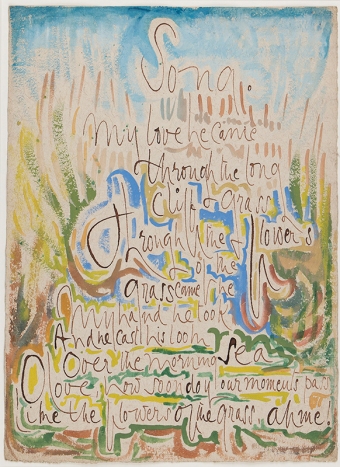 Song.
My love he came
through the long
cliff & grass
Through & flowers
the
grass came he
My hand he took
And he cast his look
Over the morning sea
O love, how soon do your moments pass
Like the flowers of the grass, ah me!